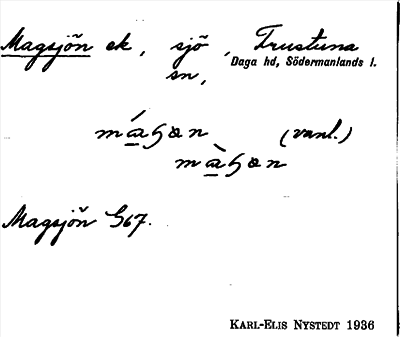 Magsjön ek, sjö, Frustuna
sn, Daga hd, Södermanlands l.
(vanl.)
Magsjön G67.
KARL-ELIS NYSTEDT 1936